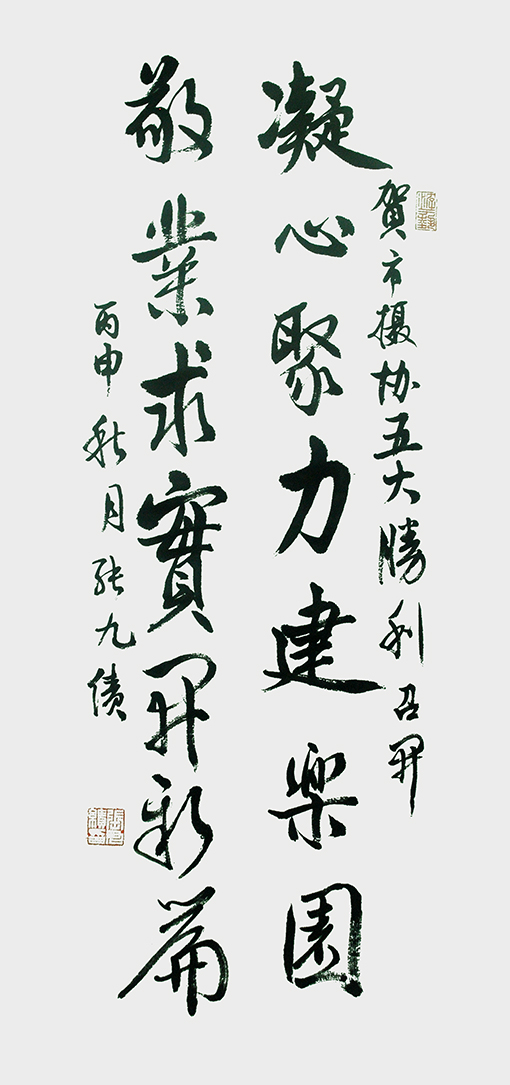 賀市摄协五大勝利召開
凝心聚力建樂園
敬業求實開新篇
丙申秋月张九绩